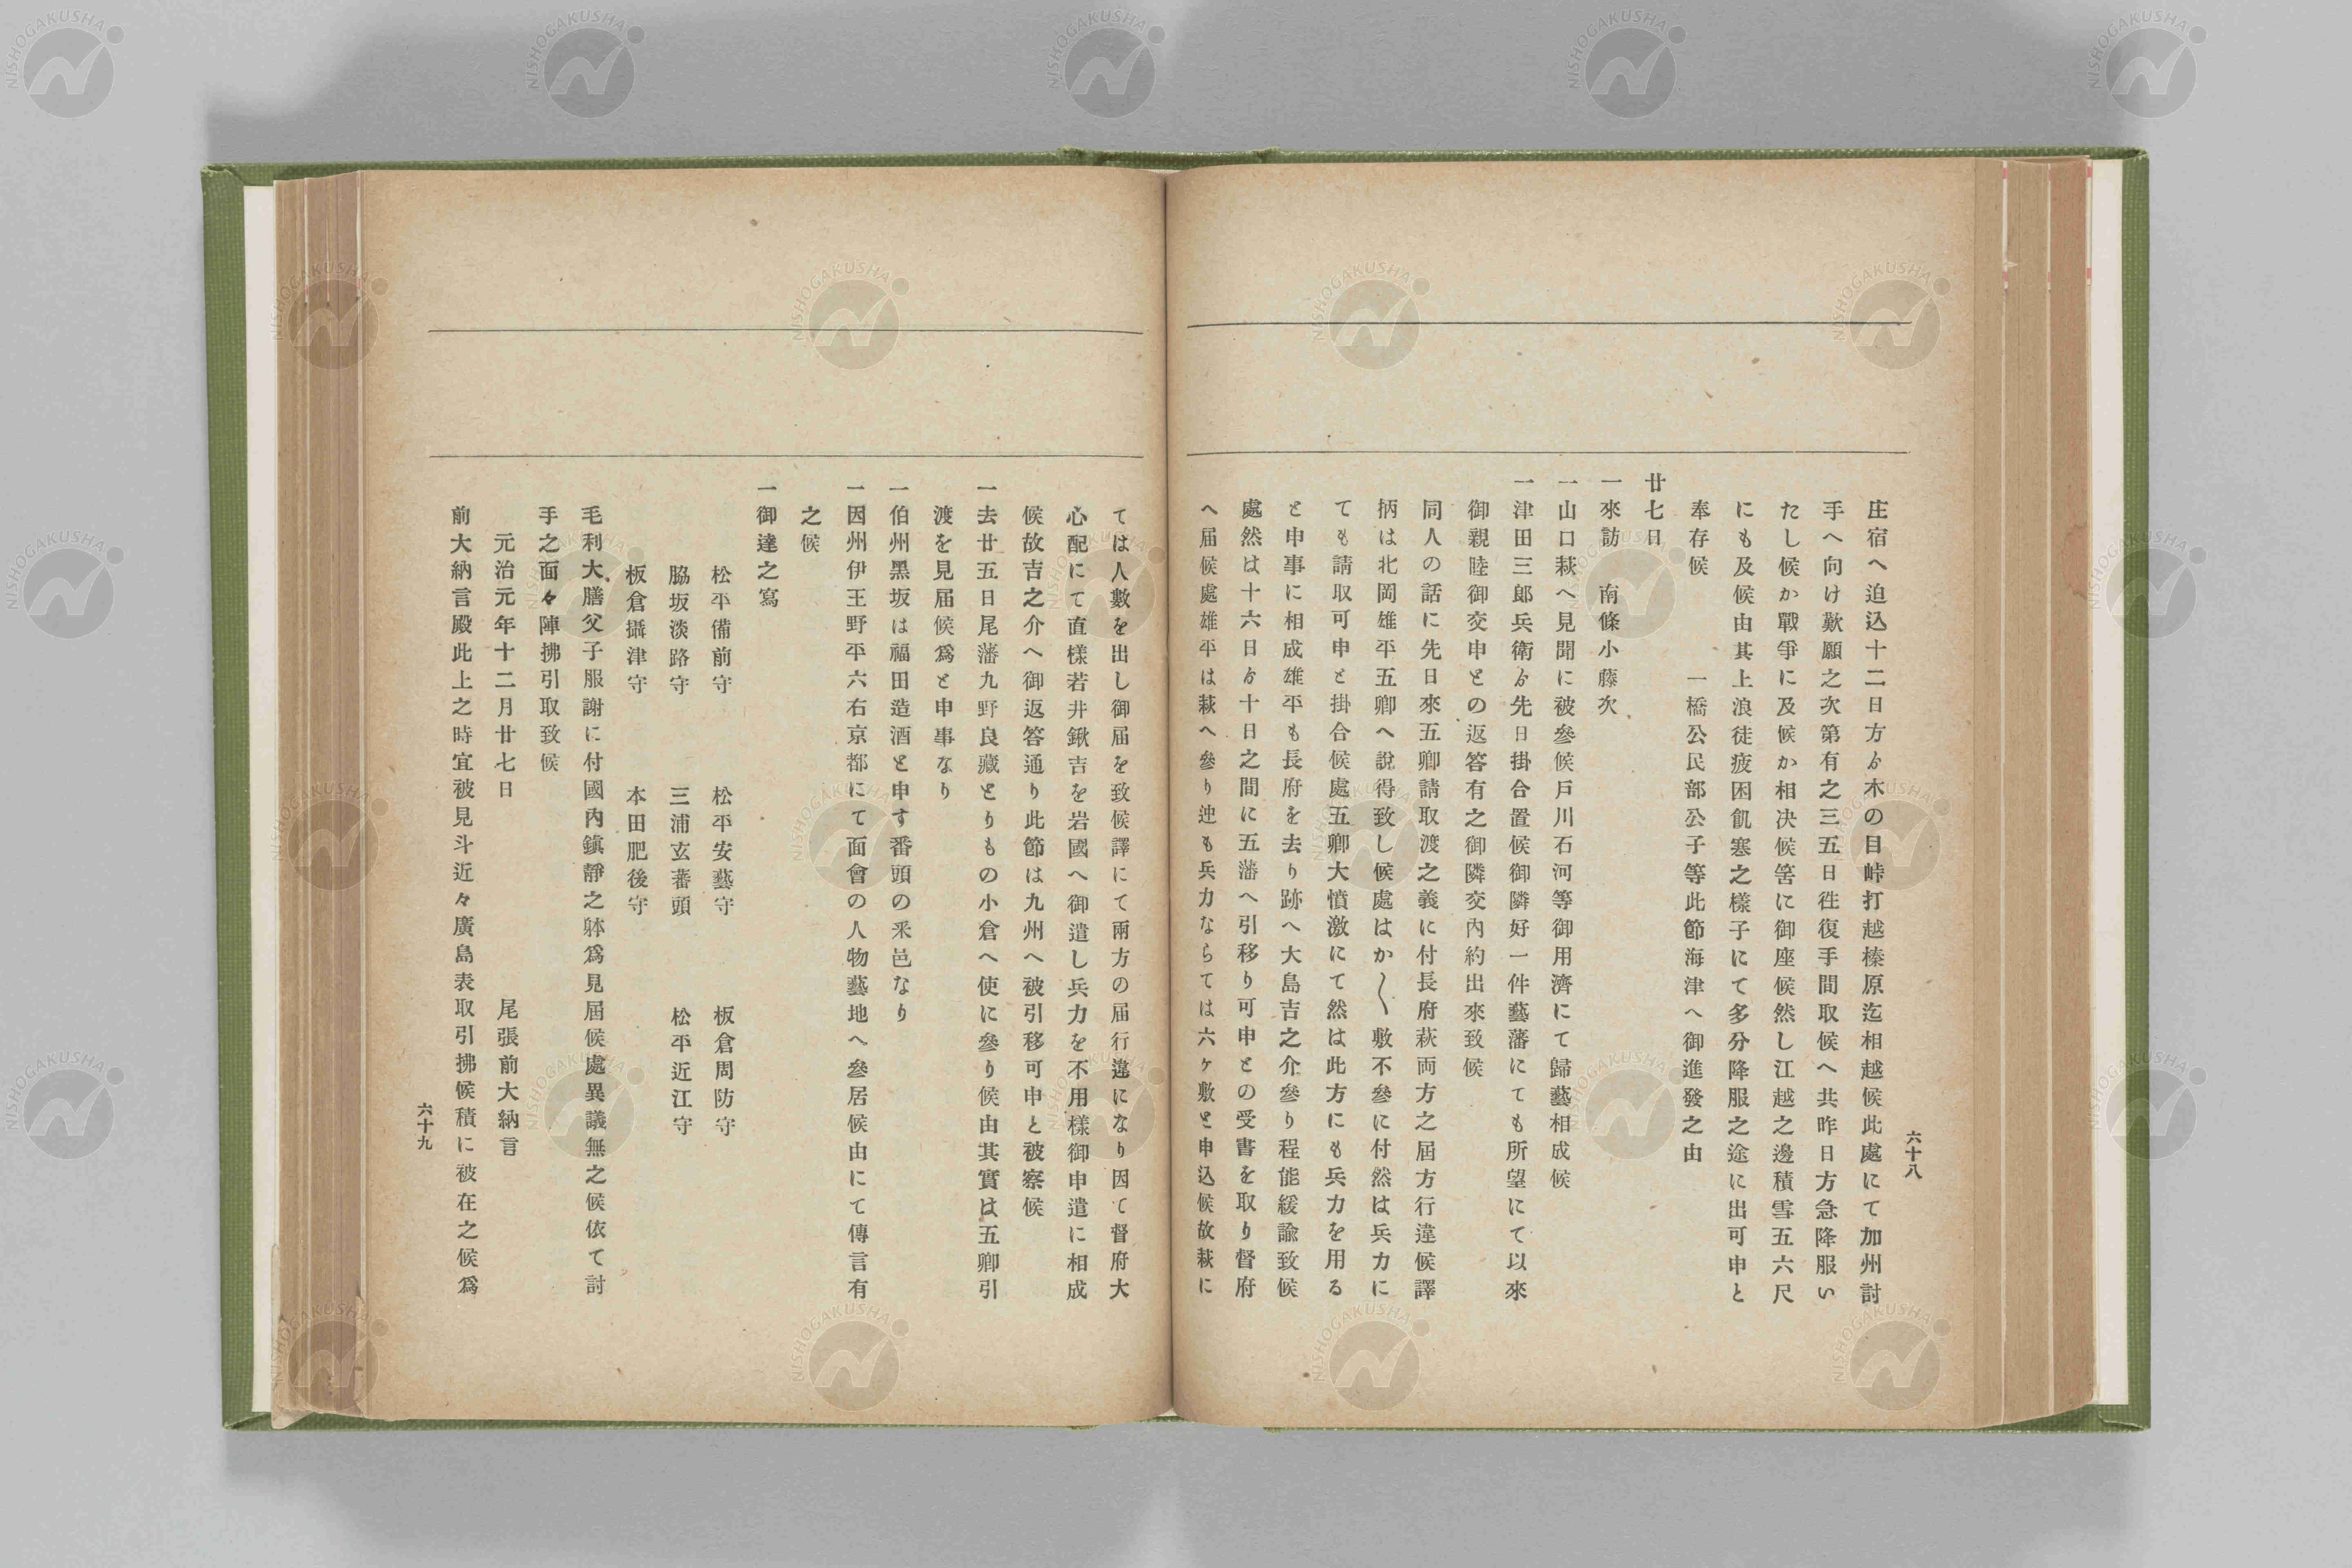 六十八
庄宿へ迫込十二日方ゟ木の目峠打越榛原迄相越候此處にて加州討
手へ向け歎願之次第有之三五日徃復手間取候へ共昨日方急降服い
たし候か戰爭に及候か相决候筈に御座候然し江越之邊積雪五六尺
にも及候由其上浪徒疲困飢寒之樣子にて多分降服之途に出可申と
奉存候　一橋公民部公子等此節海津へ御進發之由
廿七日
一來訪　南條小藤次
一山口萩へ見聞に被參候戸川石河等御用濟にて歸藝相成候
一津田三郎兵衛ゟ先日掛合置候御隣好一件藝藩にても所望にて以來
御親睦御交申との返答有之御隣交内約出來致候
同人の話に先日來五卿請取渡之義に付長府萩両方之屆方行違候譯
柄は北岡雄平五卿へ說得致し候處はか〱敷不參に付然は兵力に
ても請取可申と掛合候處五卿大憤激にて然は此方にも兵力を用る
と申事に相成雄平も長府を去り跡へ大島吉之介參り程能緩諭致候
處然は十六日ゟ十日之間に五藩へ引移り可申との受書を取り督府
へ届候處雄平は萩へ參り迚も兵力ならては六ケ敷と申込候故萩に
ては人數を出し御届を致候譯にて兩方の届行違になり因て督府大
心配にて直樣若井鍬吉を岩國へ御遣し兵力を不用樣御申遣に相成
候故吉之介へ御返答通り此節は九州へ被引移可申と被察候
一去廿五日尾藩九野良藏とりもの小倉へ使に參り候由其實は五卿引
渡を見届候爲と申事なり
一伯州黒坂は福田造酒と申す番頭の釆邑なり
一因州伊王野平六右京都にて面會の人物藝地へ參居候由にて傳言有
之候
一御達之寫
松平備前守　松平安藝守　板倉周防守
脇坂淡路守　三浦玄蕃頭　松平近江守
板倉攝津守　本田肥後守
毛利大膳父子服謝に付國内鎭靜之躰爲見屆候處異議無之候依て討
手之面々陣拂引取致候
元治元年十二月廿七日　尾張前大納言
前大納言殿此上之時宜被見斗近々廣島表取引拂候積に被在之候爲
六十九
NISHOGAKUSHA